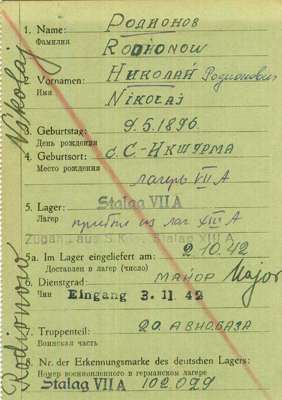 Nikolaj
Rodionow
1. Name: Родионов
Фамилия
Rodionow
2. Vornamen: Николай Родионович
Имя
Nikolaj
3. Geburtstag: 9.5.1896.
День рождения
4. Geburtsort: с. С-Икшурма
Место рождения
лагерь VII A
5. Lager: Stalag VII A
Лагерь
прибыл из лаг XIII A
Zugang aus S.Kgf. Stalag XIII A
5a. Im Lager eingeliefert am: 2.10.42
Доставлен в лагерь (число)
6. Dienstgrad: майор Major
Чин Eingang 3.11.42
7. Truppenteil: 20. авиобаза
Воинская часть
8. Nr. der Erkennungsmarke des deutschen Lagers:
Номер военнопленного в германском лагере
Stalag VII A 102099